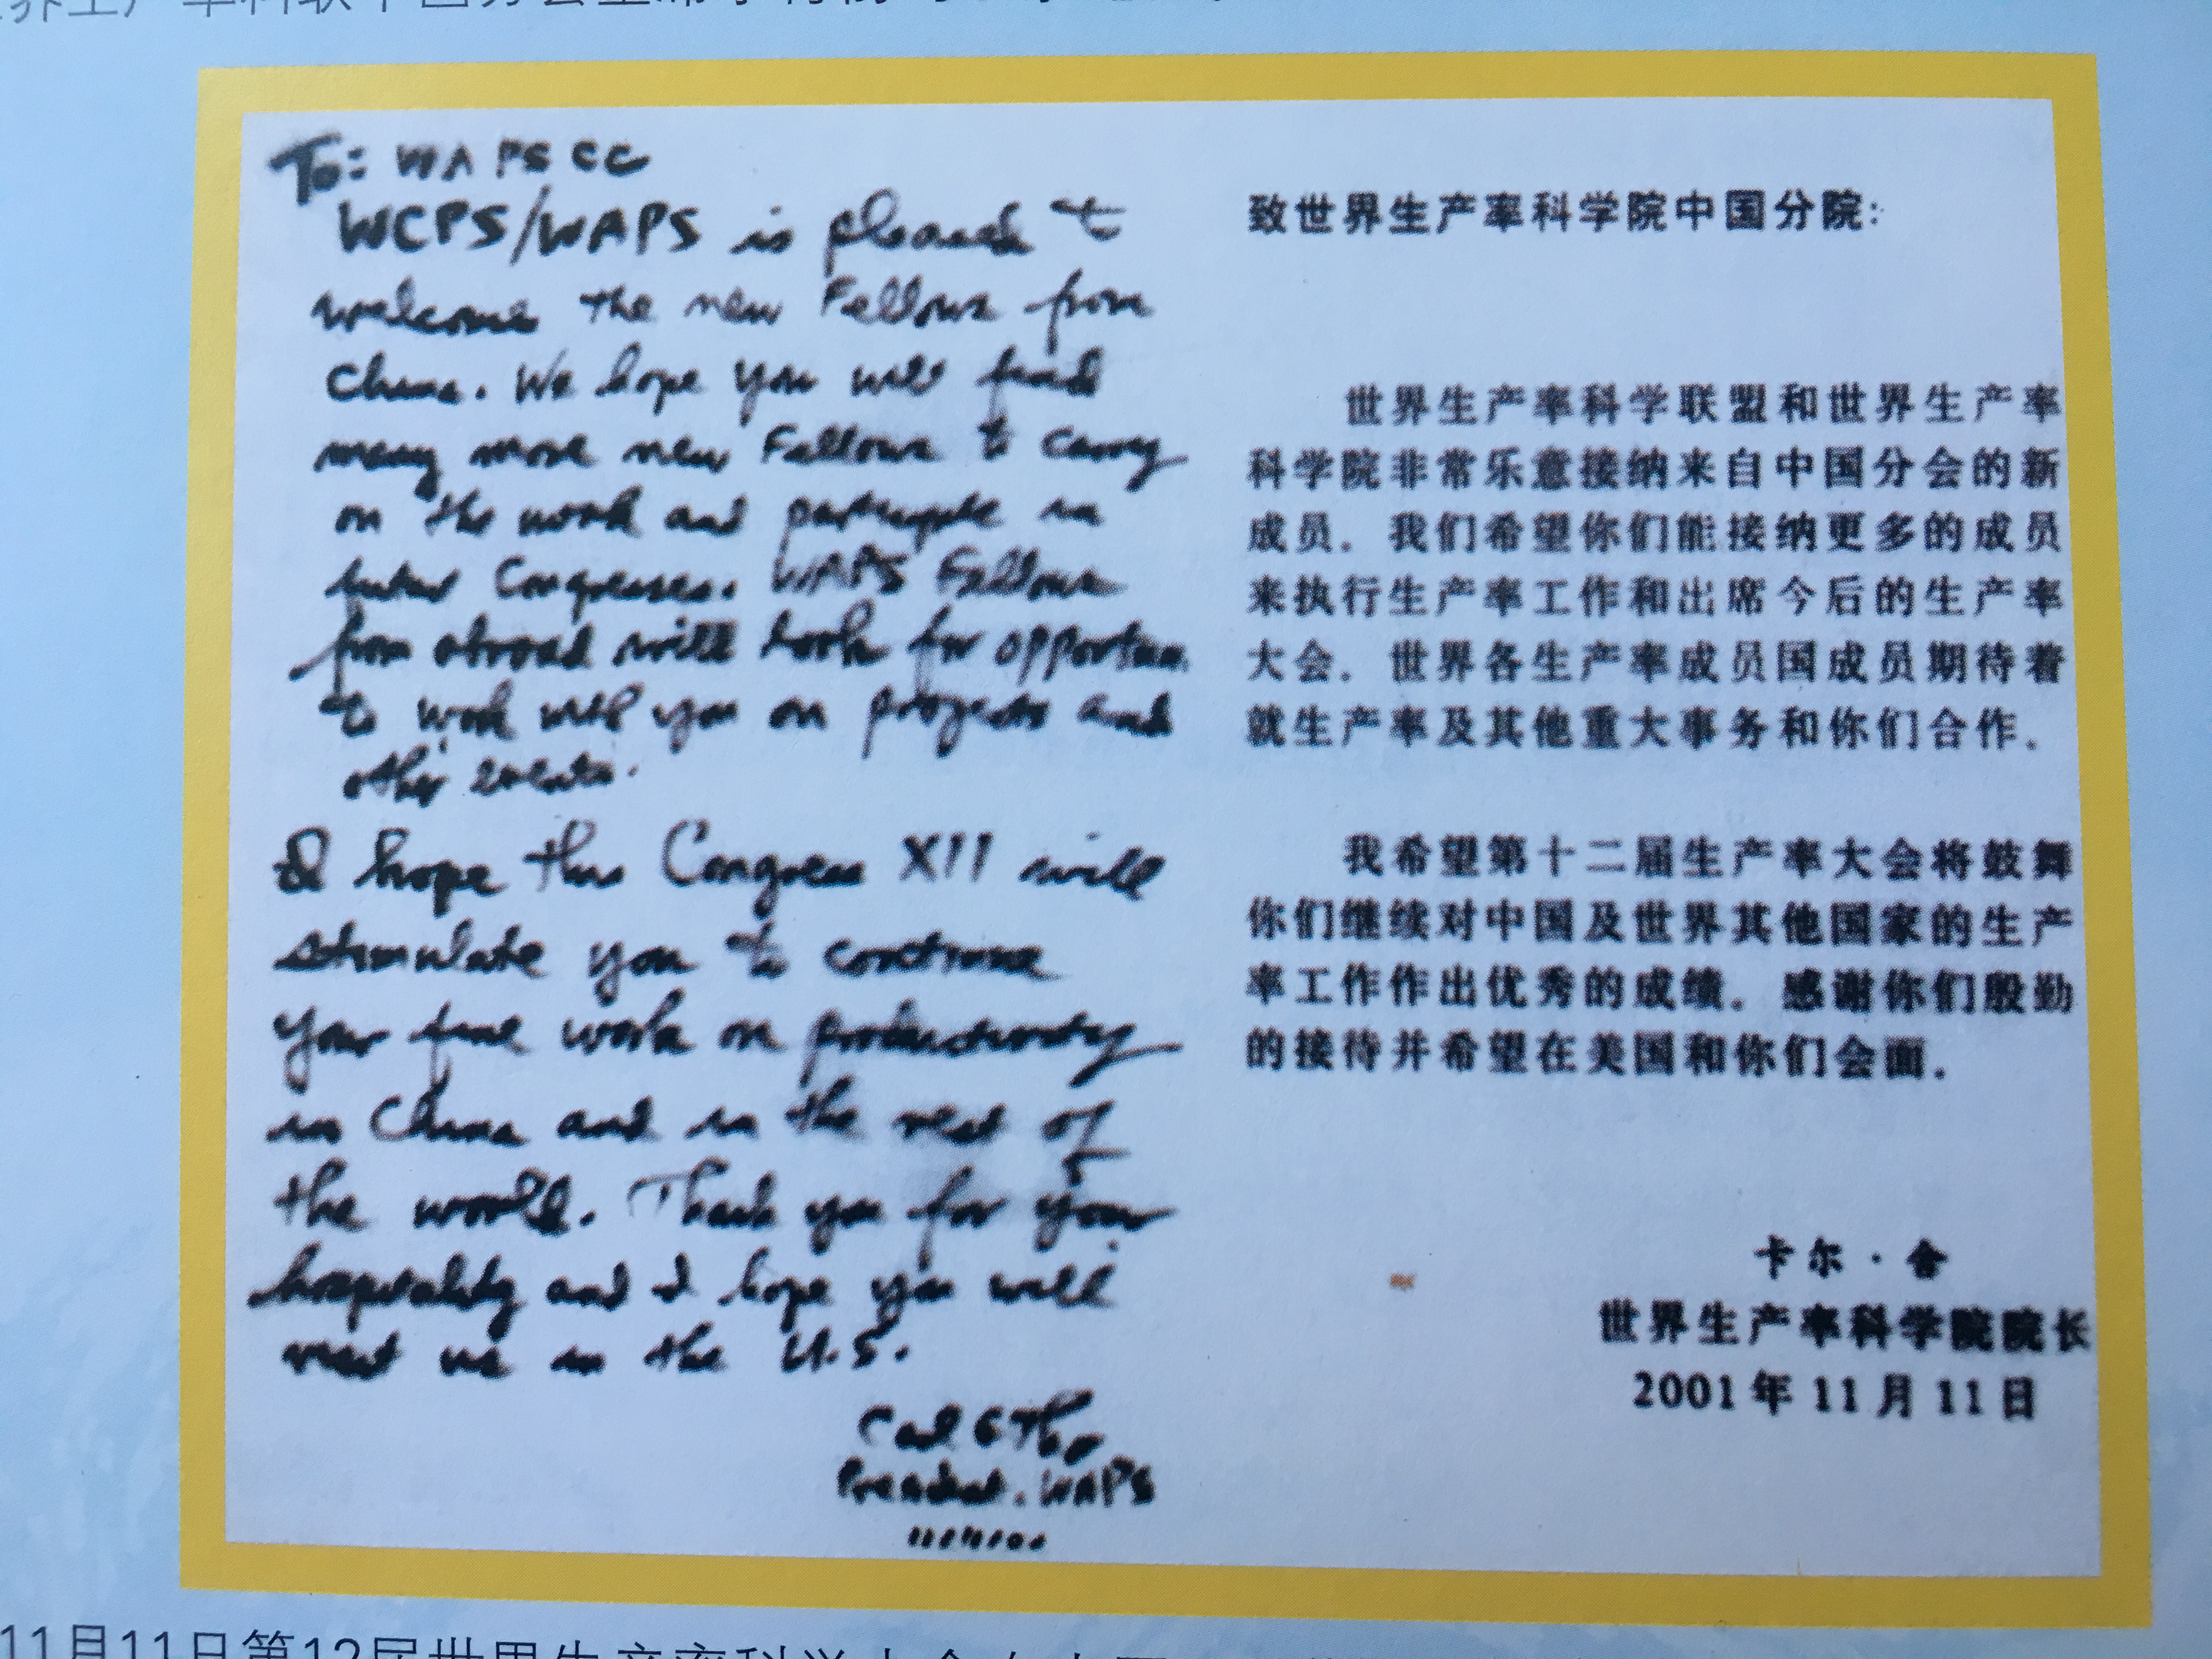 To: WAPS CC
WCPS/WAPS is pleased to
welcome the new Fellows from
China. We hope you will find
many more new Fellows to carry
on the work and participate in
future Congresses. WAPS Fellows
from abroad will look for opportun.
to work with you on projects and
other events.
I hope this Congress XII will
stimulate you to continue
your fine work on productivity
in China and in the rest of
the world. Thank you for your
hospitality and I hope you will
visit us in the U.S.
President. WAPS
致世界生产率科学院中国分院:
世界生产率科学联盟和世界生产率
科学院非常乐意接纳来自中国分会的新
成员. 我们希望你们能接纳更多的成员
来执行生产率工作和出席今后的生产率
大会. 世界各生产率成员国成员期待着
就生产率及其他重大事务和你们合作.
我希望第十二届生产率大会将鼓舞
你们继续对中国及世界其他国家的生产
率工作作出优秀的成绩. 感谢你们殷勤
的接待并希望在美国和你们会面.
卡尔·舍
世界生产率科学院院长
2001年11月11日
11月11日第12届世界生产率科学大会